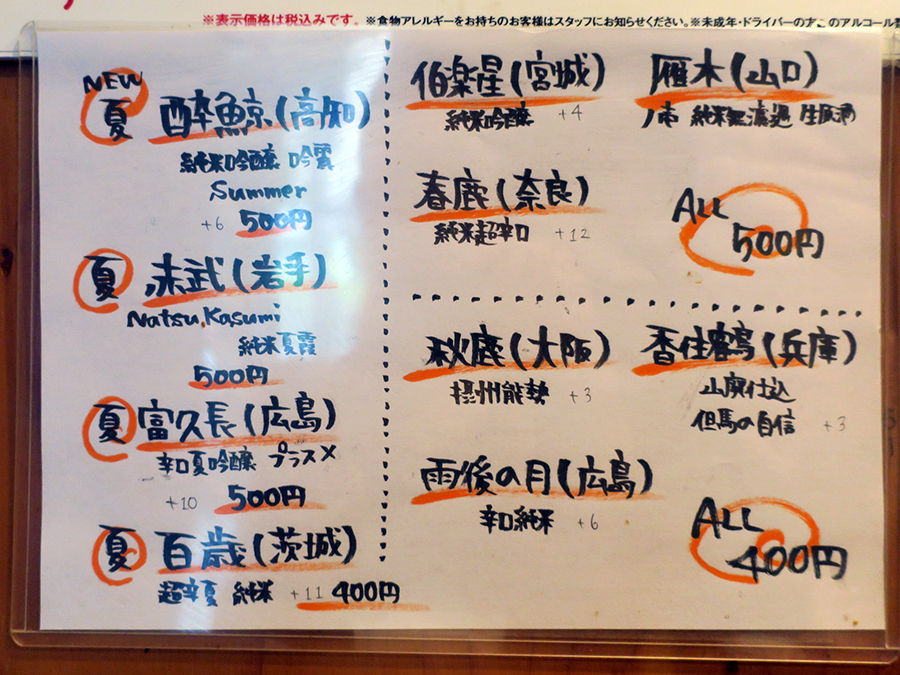 ※表示価格は税込みです。※食物アレルギーをお持ちのお客様はスタッフにお知らせください。※未成年・ドライバーの方
NEW
夏 酔鯨(高知)
純米吟醸 吟麗
Summer
+6 500円
夏 赤武(岩手)
Natsu Kasumi
純米夏霞
500円
夏 富久長(広島)
辛口夏吟醸 プラスX
+10 500円
夏 百歳(茨城)
超辛夏 純米 +11 400円
伯楽星(宮城)
純米吟醸 +4
春鹿(奈良)
純米超辛口 +12
雁木(山口)
ノ壱 純米無濾過 生原酒
ALL
500円
秋鹿(大阪)
摂州能勢 +3
雨後の月(広島)
辛口純米 +6
香住鶴(兵庫)
山廃仕込
但馬の自信 +3
ALL
400円